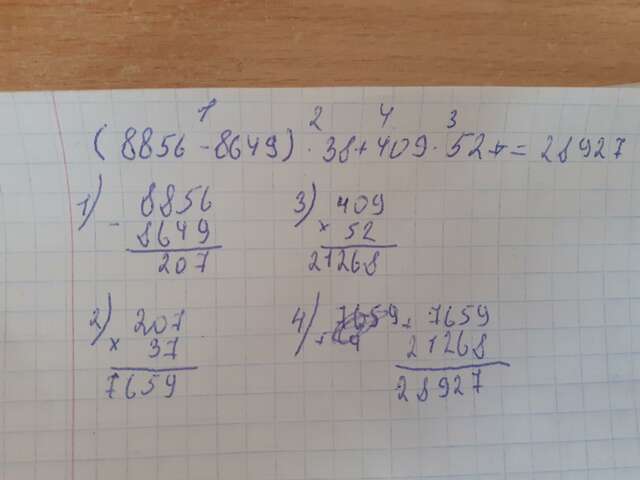 1 2 4 3
(8856 - 8649) · 38 + 409 · 52 = 28927
1) 8856
- 8649
207
3) 409
× 52
21268
2) 207
× 37
7659
4) 7659 + 7659
21268
28927